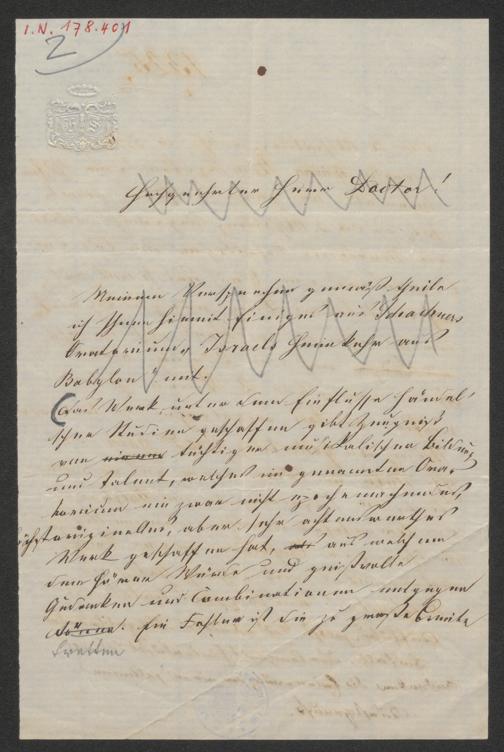 I.N. 178.401
2
Hochgeehrter Herr Doctor!
Meinem Versprechen gemäß theile
ich Ihnen hiemit Einiges aus Schachners
Oratorium „Israels Heimkehr aus
Babylon" mit.
(Das Werk, unter dem Einflusse händel'
scher Studien geschaffen gibt Zeugniß
von tüchtiger musikalischer Bildung
und Talent, welches im genannten Ora-
torium ein zwar nicht epochemachendes,
höchst originelles, aber sehr achtenswerthes
Werk geschaffen hat, aus welchem
dem Hörer Würde und geistvolle
Gedanken und Combinationen entgegen
treten
. Ein Fehler ist die zu große Breite